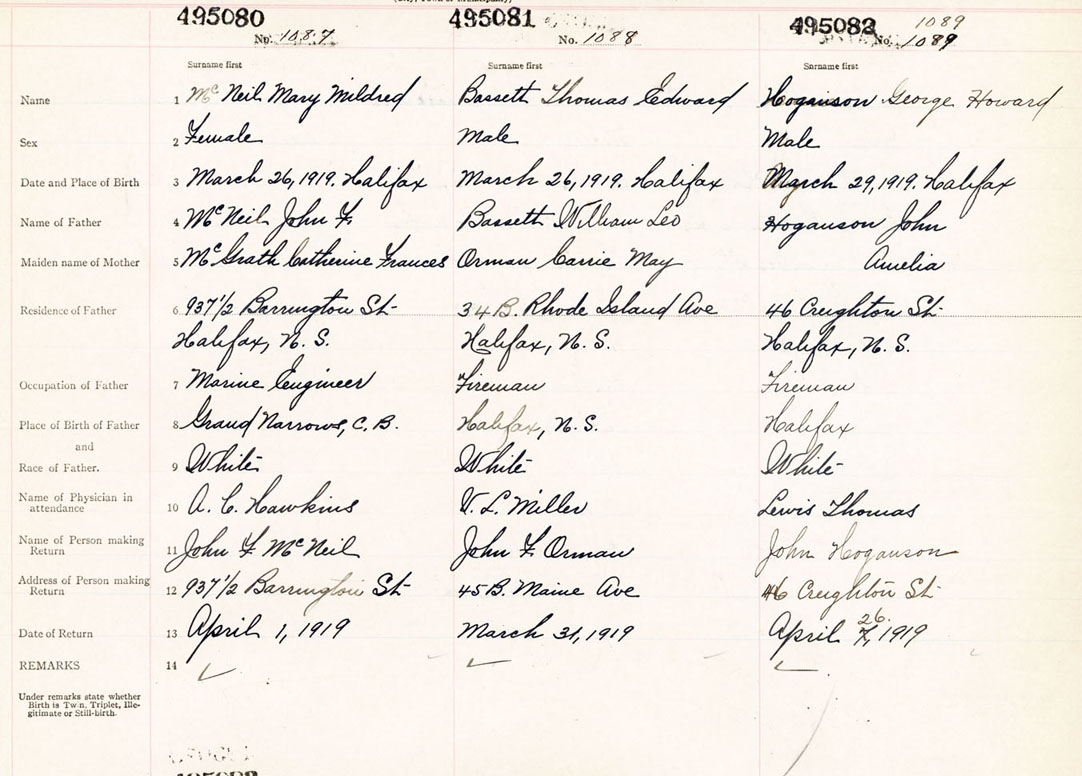 495080 495081 495082 1089
No. 1087 No. 1088 No. 1089
Surname first Surname first Surname first
Name 1 McNeil Mary Mildred Bassett Thomas Edward Hoganson George Howard
Sex 2 Female Male Male
Date and Place of Birth 3 March 26, 1919. Halifax March 26, 1919. Halifax March 29, 1919. Halifax
Name of Father 4 McNeil John F. Bassett William Leo Hoganson John
Maiden name of Mother 5 McGrath Catherine Frances Orman Carrie May Amelia
Residence of Father 6 937 1/2 Barrington St 34 B. Rhode Island Ave 46 Creighton St
Halifax, N. S. Halifax, N. S. Halifax, N. S.
Occupation of Father 7 Marine Engineer Fireman Fireman
Place of Birth of Father 8 Grand Narrows, C. B. Halifax, N. S. Halifax
and
Race of Father. 9 White White White
Name of Physician in
attendance 10 A. C. Hawkins V. L. Miller Lewis Thomas
Name of Person making
Return 11 John F McNeil John F Orman John Hoganson
Address of Person making
Return 12 937 1/2 Barrington St 45 B. Maine Ave 46 Creighton St
26.
Date of Return 13 April 1, 1919 March 31, 1919 April 7, 1919
REMARKS 14
Under remarks state whether
Birth is Twin, Triplet, Ille-
gitimate or Still-birth.